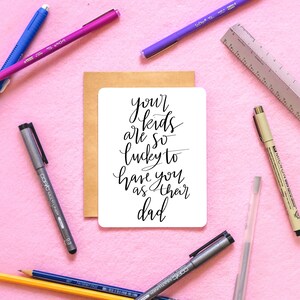 your
kids
are so
lucky to
have you
as their
dad